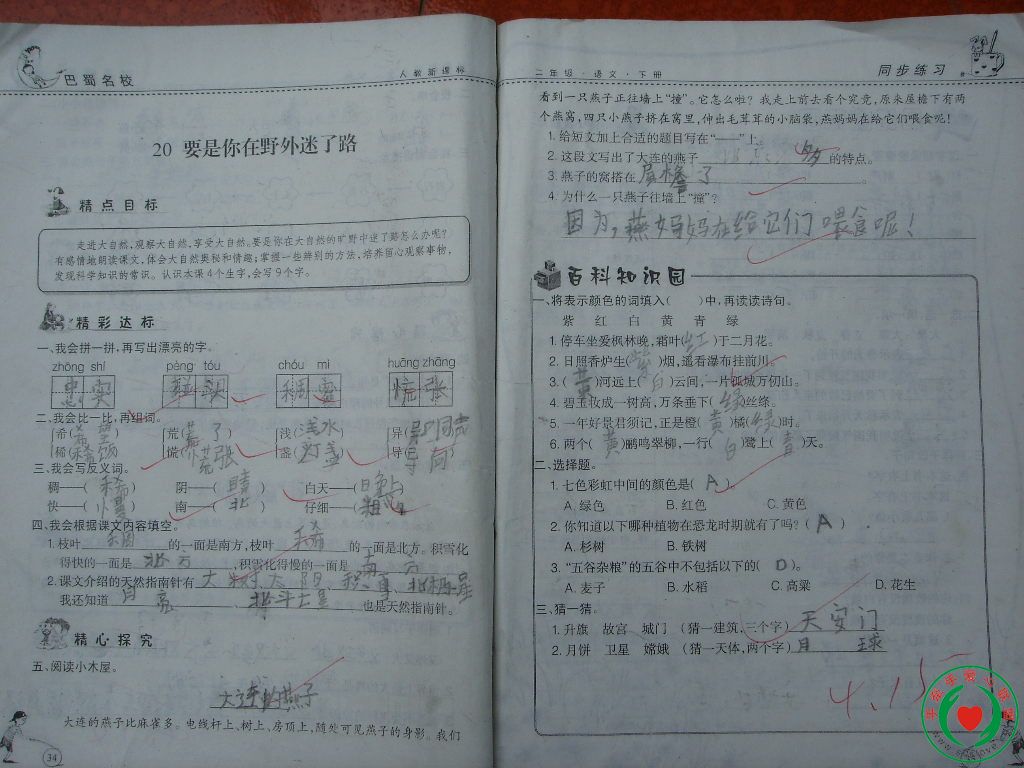 巴蜀名校
人教新课标
20 要是你在野外迷了路
精点目标
走进大自然,观察大自然,享受大自然。要是你在大自然的旷野中迷了路怎么办呢?
有感情地朗读课文,体会大自然奥秘和情趣;掌握一些辨别的方法,培养留心观察事物,
发现科学知识的常识。认识本课4个生字,会写9个字。
精彩达标
一、我会拼一拼,再写出漂亮的字。
zhōng shí pèng tóu chóu mì huāng zhāng
忠实 碰头 稠密 慌张
二、我会比一比,再组词。
希(希望) 荒(荒了) 浅(浅水) 异(异口同声)
稀(稀饭) 慌(慌张) 盏(灯盏) 导( 向)
三、我会写反义词。
稠——(稀) 阴——(晴) 白天——(晚上)
快——(慢) 南——(北) 仔细——(粗心)
四、我会根据课文内容填空。
1.枝叶 稠 的一面是南方,枝叶 稀 的一面是北方。积雪化
得快的一面是 北方 ,积雪化得慢的一面是 南方
2.课文介绍的天然指南针有 大树、太阳、积雪、北极星
我还知道 月亮 、北斗七星 也是天然指南针。
精心探究
五、阅读小木屋。
大连的燕子
大连的燕子比麻雀多。电线杆上、树上、房顶上,随处可见燕子的身影。我们
34
二年级·语文·下册
同步练习
看到一只燕子正往墙上“撞”。它怎么啦?我走上前去看个究竟,原来屋檐下有两
个燕窝,四只小燕子挤在窝里,伸出毛茸茸的小脑袋,燕妈妈在给它们喂食呢!
1.给短文加上合适的题目写在“——”上。
2.这段文写出了大连的燕子 多 的特点。
3.燕子的窝搭在 屋檐了 。
4.为什么一只燕子往墙上“撞”?
因为,燕妈妈在给它们喂食呢!
百科知识园
一、将表示颜色的词填入( )中,再读读诗句。
紫 红 白 黄 青 绿
1.停车坐爱枫林晚,霜叶(红)于二月花。
2.日照香炉生(紫)烟,遥看瀑布挂前川。
3.(黄)河远上(白)云间,一片孤城万仞山。
4.碧玉妆成一树高,万条垂下(绿)丝绦。
5.一年好景君须记,正是橙(黄)橘(绿)时。
6.两个(黄)鹂鸣翠柳,一行(白)鹭上(青)天。
二、选择题。
1.七色彩虹中间的颜色是(A)
A.绿色 B.红色 C.黄色
2.你知道以下哪种植物在恐龙时期就有了吗?(A)
A.杉树 B.铁树
3.“五谷杂粮”的五谷中不包括以下的(D)。
A.麦子 B.水稻 C.高粱 D.花生
三、猜一猜。
1.升旗 故宫 城门 (猜一建筑,三个字) 天安门
2.月饼 卫星 嫦娥 (猜一天体,两个字) 月球
4.15